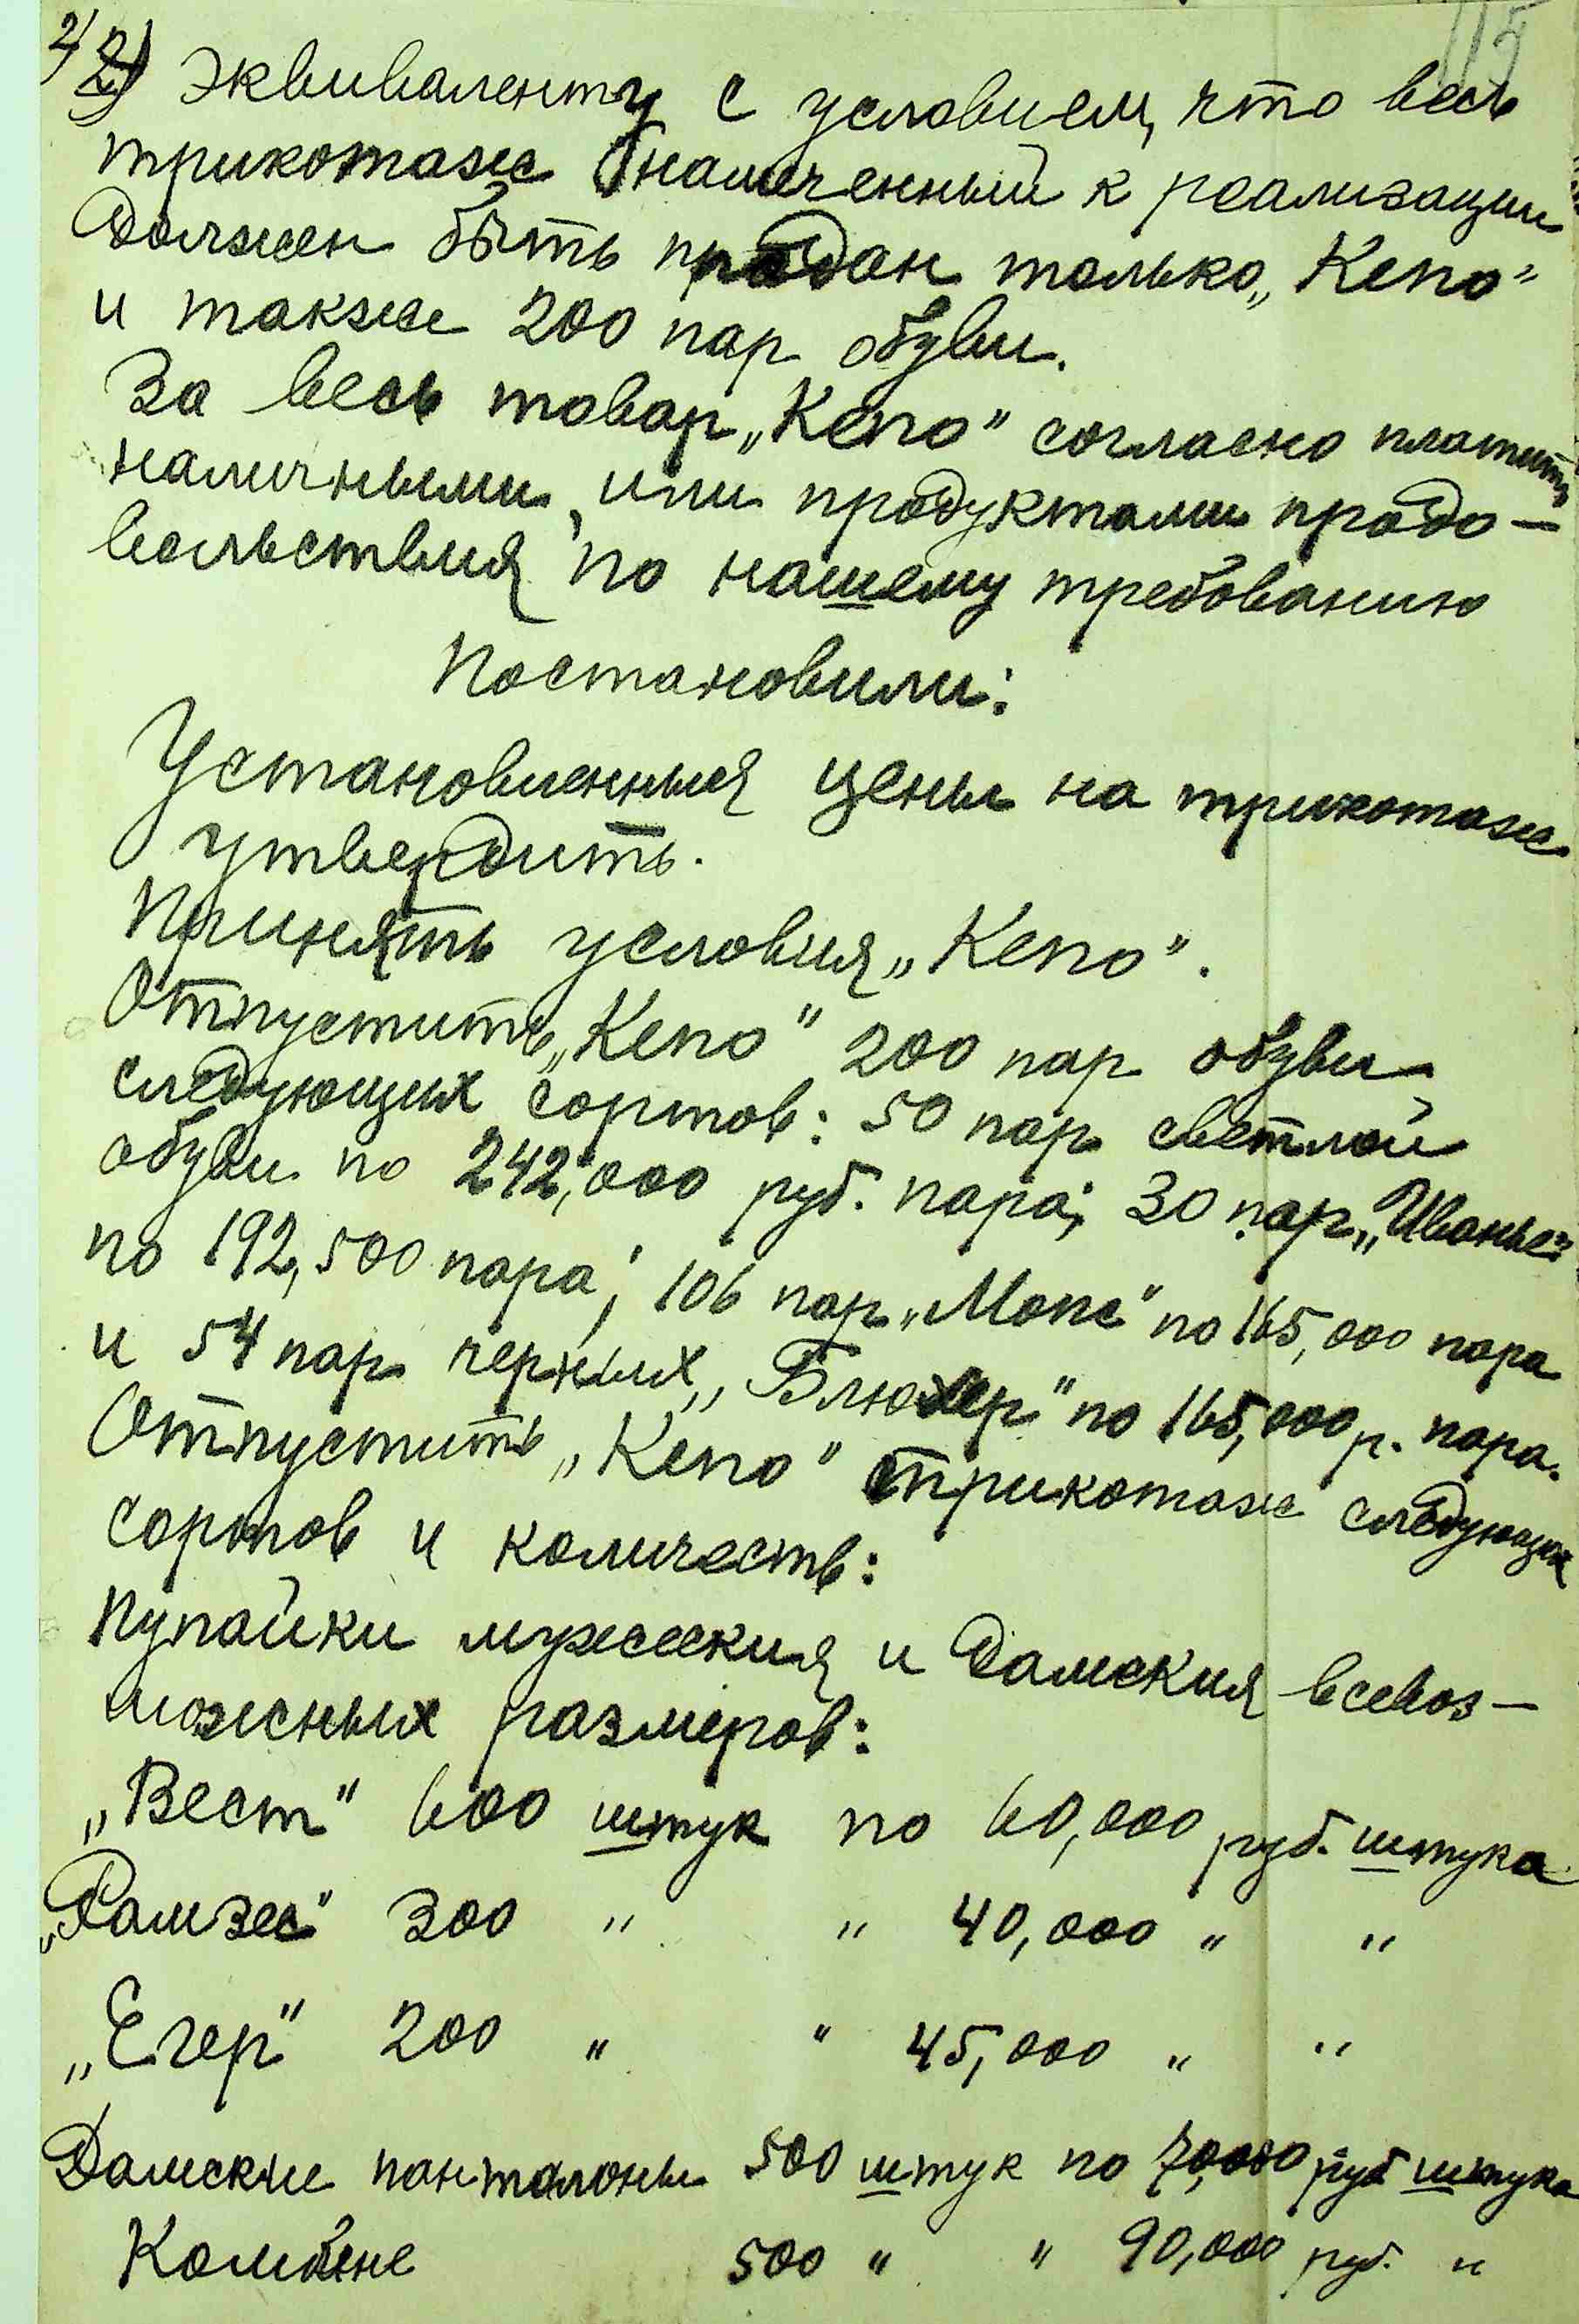 115
2) эквиваленту с условием, что весь
трикотаж намеченный к реализации
должен быть продан только „Кепо"
и также 200 пар обуви.
За весь товар „Кепо" согласно платить
наличными, или продуктами продо-
вольствия по нашему требованию
Постановили:
Установленныя цены на трикотаж
утвердить.
Принять условия „Кепо".
Отпустить „Кепо" 200 пар обуви
следующих сортов: 50 пар светлой
обуви по 242,000 руб. пара; 30 пар „Иванье"
по 192,500 пара; 106 пар „Мопс" по 165,000 пара
и 54 пар черных „Блюхер" по 165,000 р. пара.
Отпустить „Кепо" трикотаж следующих
сортов и количеств:
Фупайки мужеския и Дамския всевоз-
можсных размеров:
„Вест" 600 штук по 60,000 руб. штука
„Рамзес" 300 " " 40,000 " "
„Егер" 200 " " 45,000 " "
Дамские панталоны 500 штук по 70,000 руб штука
Комбине 500 " " 90,000 руб. "